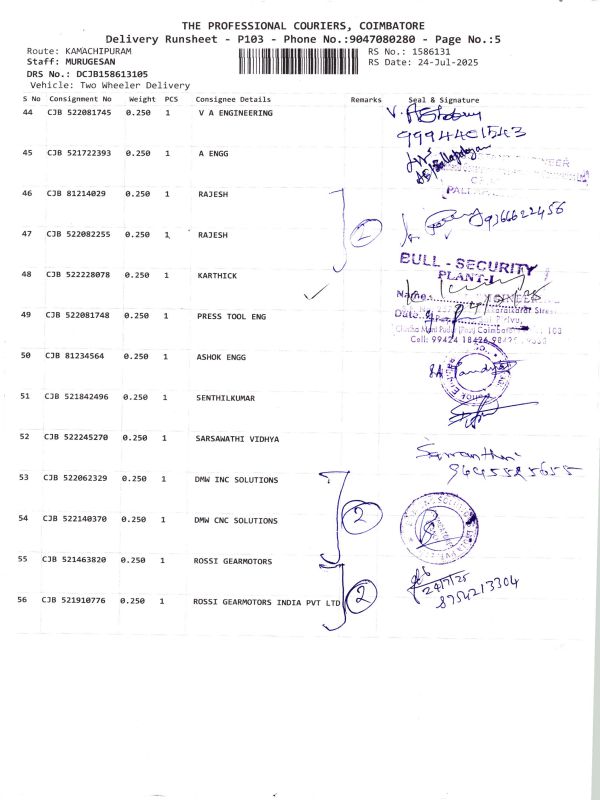 THE PROFESSIONAL COURIERS, COIMBATORE
Delivery Runsheet - P103 - Phone No.:9047080280 - Page No.:5
Route: KAMACHIPURAM RS No.: 1586131
Staff: MURUGESAN RS Date: 24-Jul-2025
DRS No.: DCJB158613105
Vehicle: Two Wheeler Delivery
S No Consignment No Weight PCS Consignee Details Remarks Seal & Signature
44 CJB 522081745 0.250 1 V A ENGINEERING
9994401543
45 CJB 521722393 0.250 1 A ENGG
46 CJB 81214029 0.250 1 RAJESH
9366622456
47 CJB 522082255 0.250 1 RAJESH
2
BULL - SECURITY
PLANT-I
48 CJB 522228078 0.250 1 KARTHICK
Name
Date
49 CJB 522081748 0.250 1 PRESS TOOL ENG
50 CJB 81234564 0.250 1 ASHOK ENGG
51 CJB 521842496 0.250 1 SENTHILKUMAR
52 CJB 522245270 0.250 1 SARSAWATHI VIDHYA
53 CJB 522062329 0.250 1 DMW INC SOLUTIONS
54 CJB 522140370 0.250 1 DMW CNC SOLUTIONS
2
55 CJB 521463820 0.250 1 ROSSI GEARMOTORS
24/7/25
8754213304
56 CJB 521910776 0.250 1 ROSSI GEARMOTORS INDIA PVT LTD
2